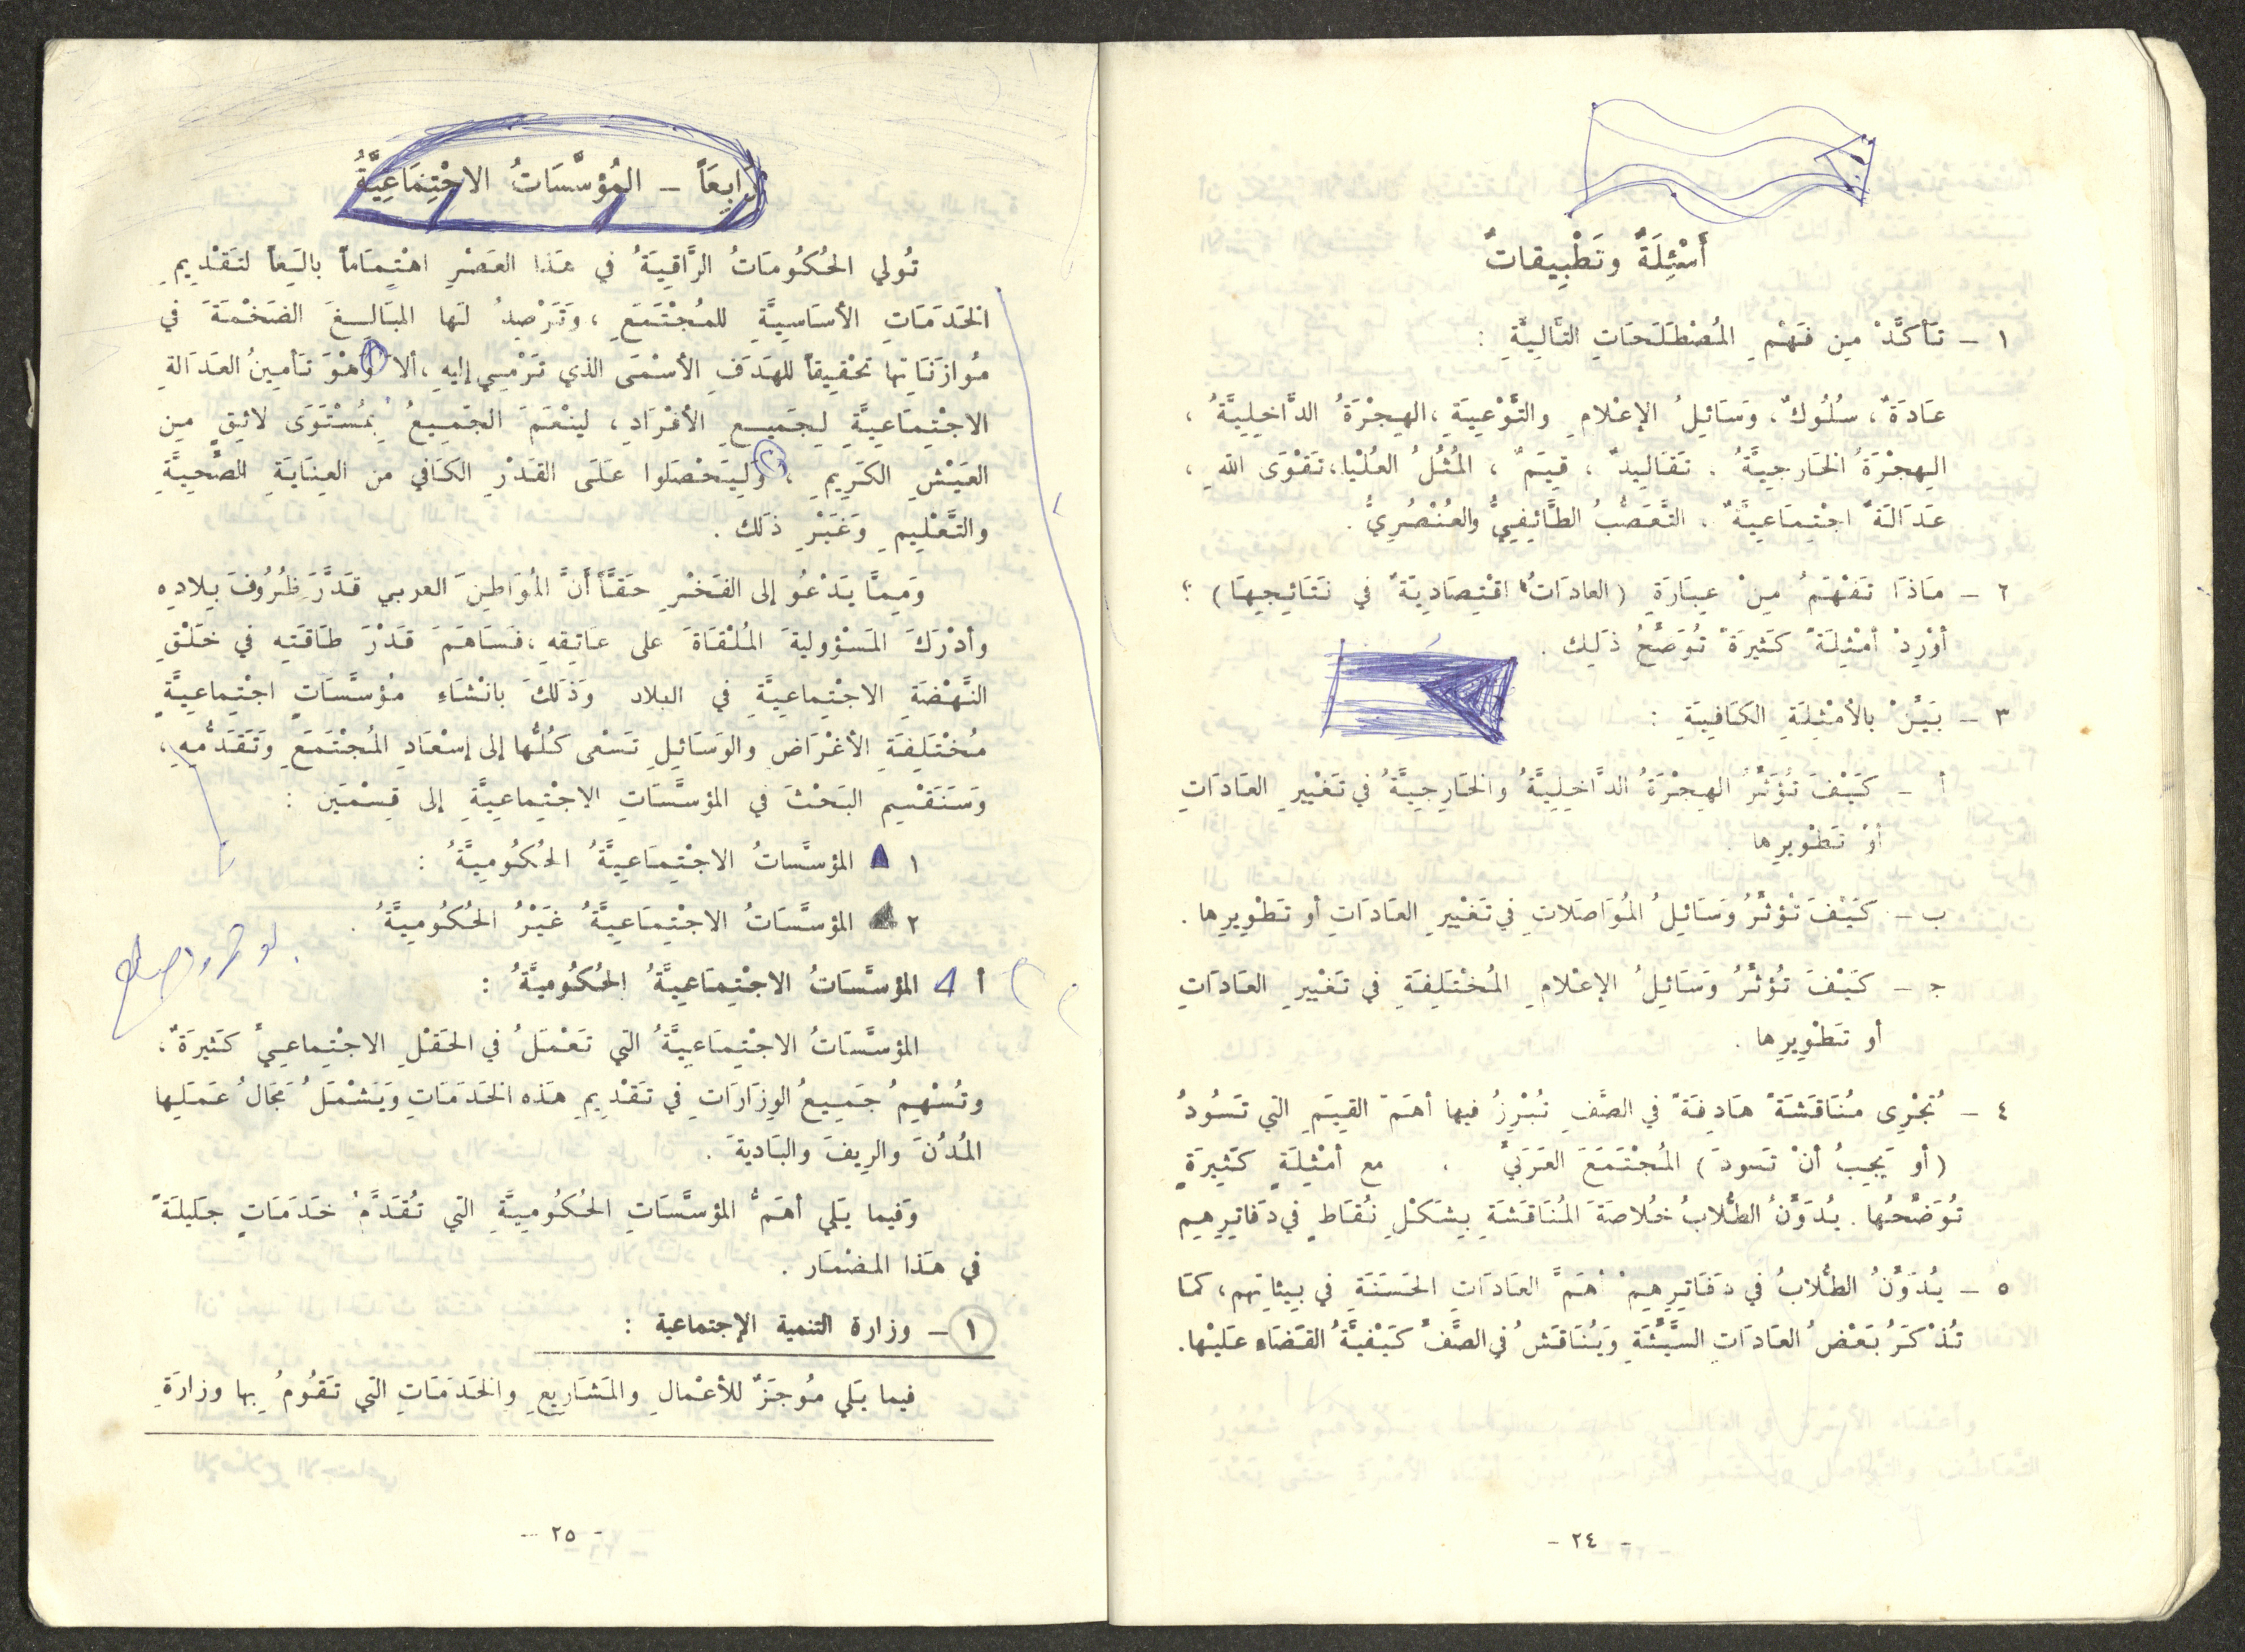 أَسْئِلَةٌ وتَطْبِيقاتٌ
١ - تَأكَّدْ مِن فَهْمِ المُصْطَلَحَاتِ التَّالِيَّةِ :
عَادَةٌ ، سُلُوكٌ ، وَسَائِلُ الإعْلامِ والتَّوْعِيَةِ ، الهِجْرَةُ الدَّاخِلِيَّةُ ،
الهِجْرَةُ الخَارجِيَّةُ . تَقَالِيدٌ ، قِيَمٌ ، المُثُلُ العُلْيا ، تَقْوَى اللهِ ،
عَدَالَةٌ اجْتِمَاعِيَّةٌ ، التَّعَصُّبُ الطَّائِفِيُّ والعُنْصُرِيُّ .
٢ - مَاذَا تَفْهَمُ مِنْ عِبَارَةِ ( العادَاتُ اقْتِصَادِيَةٌ في نَتَائِجِهَا ) ؟
أوْرِدْ أمْثِلَةً كَثِيرَةً تُوَضِّحُ ذَلِك .
٣ - بَيِّنْ بالأمْثِلَةِ الكَافِيَةِ :
أ - كَيْفَ تُؤَثِّرُ الهِجْرَةُ الدَّاخِلِيَّةُ والخَارِجِيَّةُ في تَغْيِيرِ العَادَاتِ
أوْ تَطْوِيرِها .
ب - كَيْفَ تُؤثِّرُ وَسَائِلُ المُوَاصَلاتِ في تَغْيِيرِ العَادَاتِ أو تَطْوِيرِها .
ج - كَيْفَ تُؤثِّرُ وَسَائِلُ الإعْلامِ المُخْتَلِفَةِ في تَغْيِيرِ العَادَاتِ
أو تَطْوِيرِها .
٤ - تُجْرِى مُنَاقَشَةً هَادِفَةً في الصَّفِ تُبْرِزُ فيها أهَمّ القِيَمِ التي تَسُودُ
( أو يَجِبُ أنْ تَسودَ ) المُجْتَمَعَ العَرَبيَّ ، مع أمْثِلَةٍ كَثِيرَةٍ
تُوَضِّحُها . يُدَوِّنُ الطُّلابُ خُلاصَةَ المُنَاقَشَةِ بِشَكْلِ نُقَاطٍ في دَفَاتِرِهِم
٥ - يُدَوِّنُ الطُّلابُ في دَفَاتِرِهِمْ أهَمَّ العَادَاتِ الحَسَنَةِ في بِيئاتِهم ، كمَا
تُذْكَرُ بَعْضُ العَادَاتِ السَّيِّئَةِ وَيُنَاقَشُ في الصَّفِّ كَيْفِيَّةُ القَضَاءِ عَلَيْها .
- ٢٤ -
رَابِعَاً - المُؤسَّسَاتُ الاجْتِمَاعِيَّةُ
تُولي الحُكُومَاتُ الرَّاقِيَةُ في هَذا العَصْرِ اهْتِمَاماً بالِغاً لتَقْدِيمِ
الخَدَمَاتِ الأسَاسِيَّةِ للمُجْتَمَعِ ، وَتَرْصِدُ لَها المبَالِغَ الضَخْمَةَ في
مُوازَنَاتِها تَحْقِيقاً للهَدَفِ الأسْمَى الذي تَرْمِي إليهِ ، ألا وَهْوَ تَأمِينُ العَدَالةِ
الاجْتِمَاعِيَّةِ لِجَمِيعِ الأفْرَادِ ، ليَنْعَمَ الجَمِيعُ بِمُسْتَوَى لائِقٍ مِن
العَيْشِ الكَرِيمِ ، وَلِيَحْصَلوا عَلَى القَدْرِ الكَافي من العِنَايَةِ الصِّحِيَّةِ
والتَّعْلِيمِ وَغَيْرِ ذَلك .
وَمِمَّا يَدْعُو إلى الفَخْرِ حَقَّاً أنَّ المُوَاطِنَ العربي قَدَّرَ ظُرُوفَ بِلادِه
وأدْرَكَ المَسْؤوليةَ المُلْقَاةَ على عَاتِقهِ ، فَسَاهَمَ قَدْرَ طَاقَتِه في خَلْقِ
النَّهْضَةِ الاجْتِماعِيَّةِ في البلاد وَذَلكَ بانْشَاءِ مُؤسَّسَاتٍ اجْتِماعِيَّةٍ
مُخْتَلِفَةِ الأغْرَاضِ والوَسَائِلِ تَسْعى كُلُّها إلى إسْعَادِ المُجْتَمَعِ وَتَقَدُّمهِ ،
وَسَنَقْسِم البَحْثَ في المؤسَّسَاتِ الاجْتِماعِيَّةِ إلى قِسْمَين :
١ المؤسَّساتُ الاجْتِمَاعِيَّةُ الحُكُومِيَّةُ :
٢ المؤسَّسَاتُ الاجْتِمَاعِيَّةُ غَيْرُ الحُكُومِيَّةُ .
أ المؤسَّسَاتُ الاجْتِمَاعِيَّةُ الحُكُوميَّةُ :
المؤسَّسَاتُ الاجْتِمَاعِيَّةُ التي تَعْمَلُ في الحَقْلِ الاجْتِماعِيِّ كَثيرَةٌ ،
وتُسْهِمُ جَمِيعُ الوِزَارَاتِ في تَقْدِيمِ هَذه الخَدَمَاتِ وَيَشْمَلُ مَجَالُ عَمَلِها
المُدُنَ والرِيفَ والبَاديةَ .
وَفيما يَلي أهَمُّ المؤسَّسَاتِ الحُكُومِيَّةِ التي تُقَدِّمُ خَدَمَاتٍ جَليلَةً
في هَذا المضْمَار .
١ - وزارة التنمية الإجتماعية :
فيما يَلي مُوجَزٌ للأعْمالِ والمَشَاريعِ والخَدَمَاتِ التي تَقُومُ بها وزارَة
- ٢٥ -